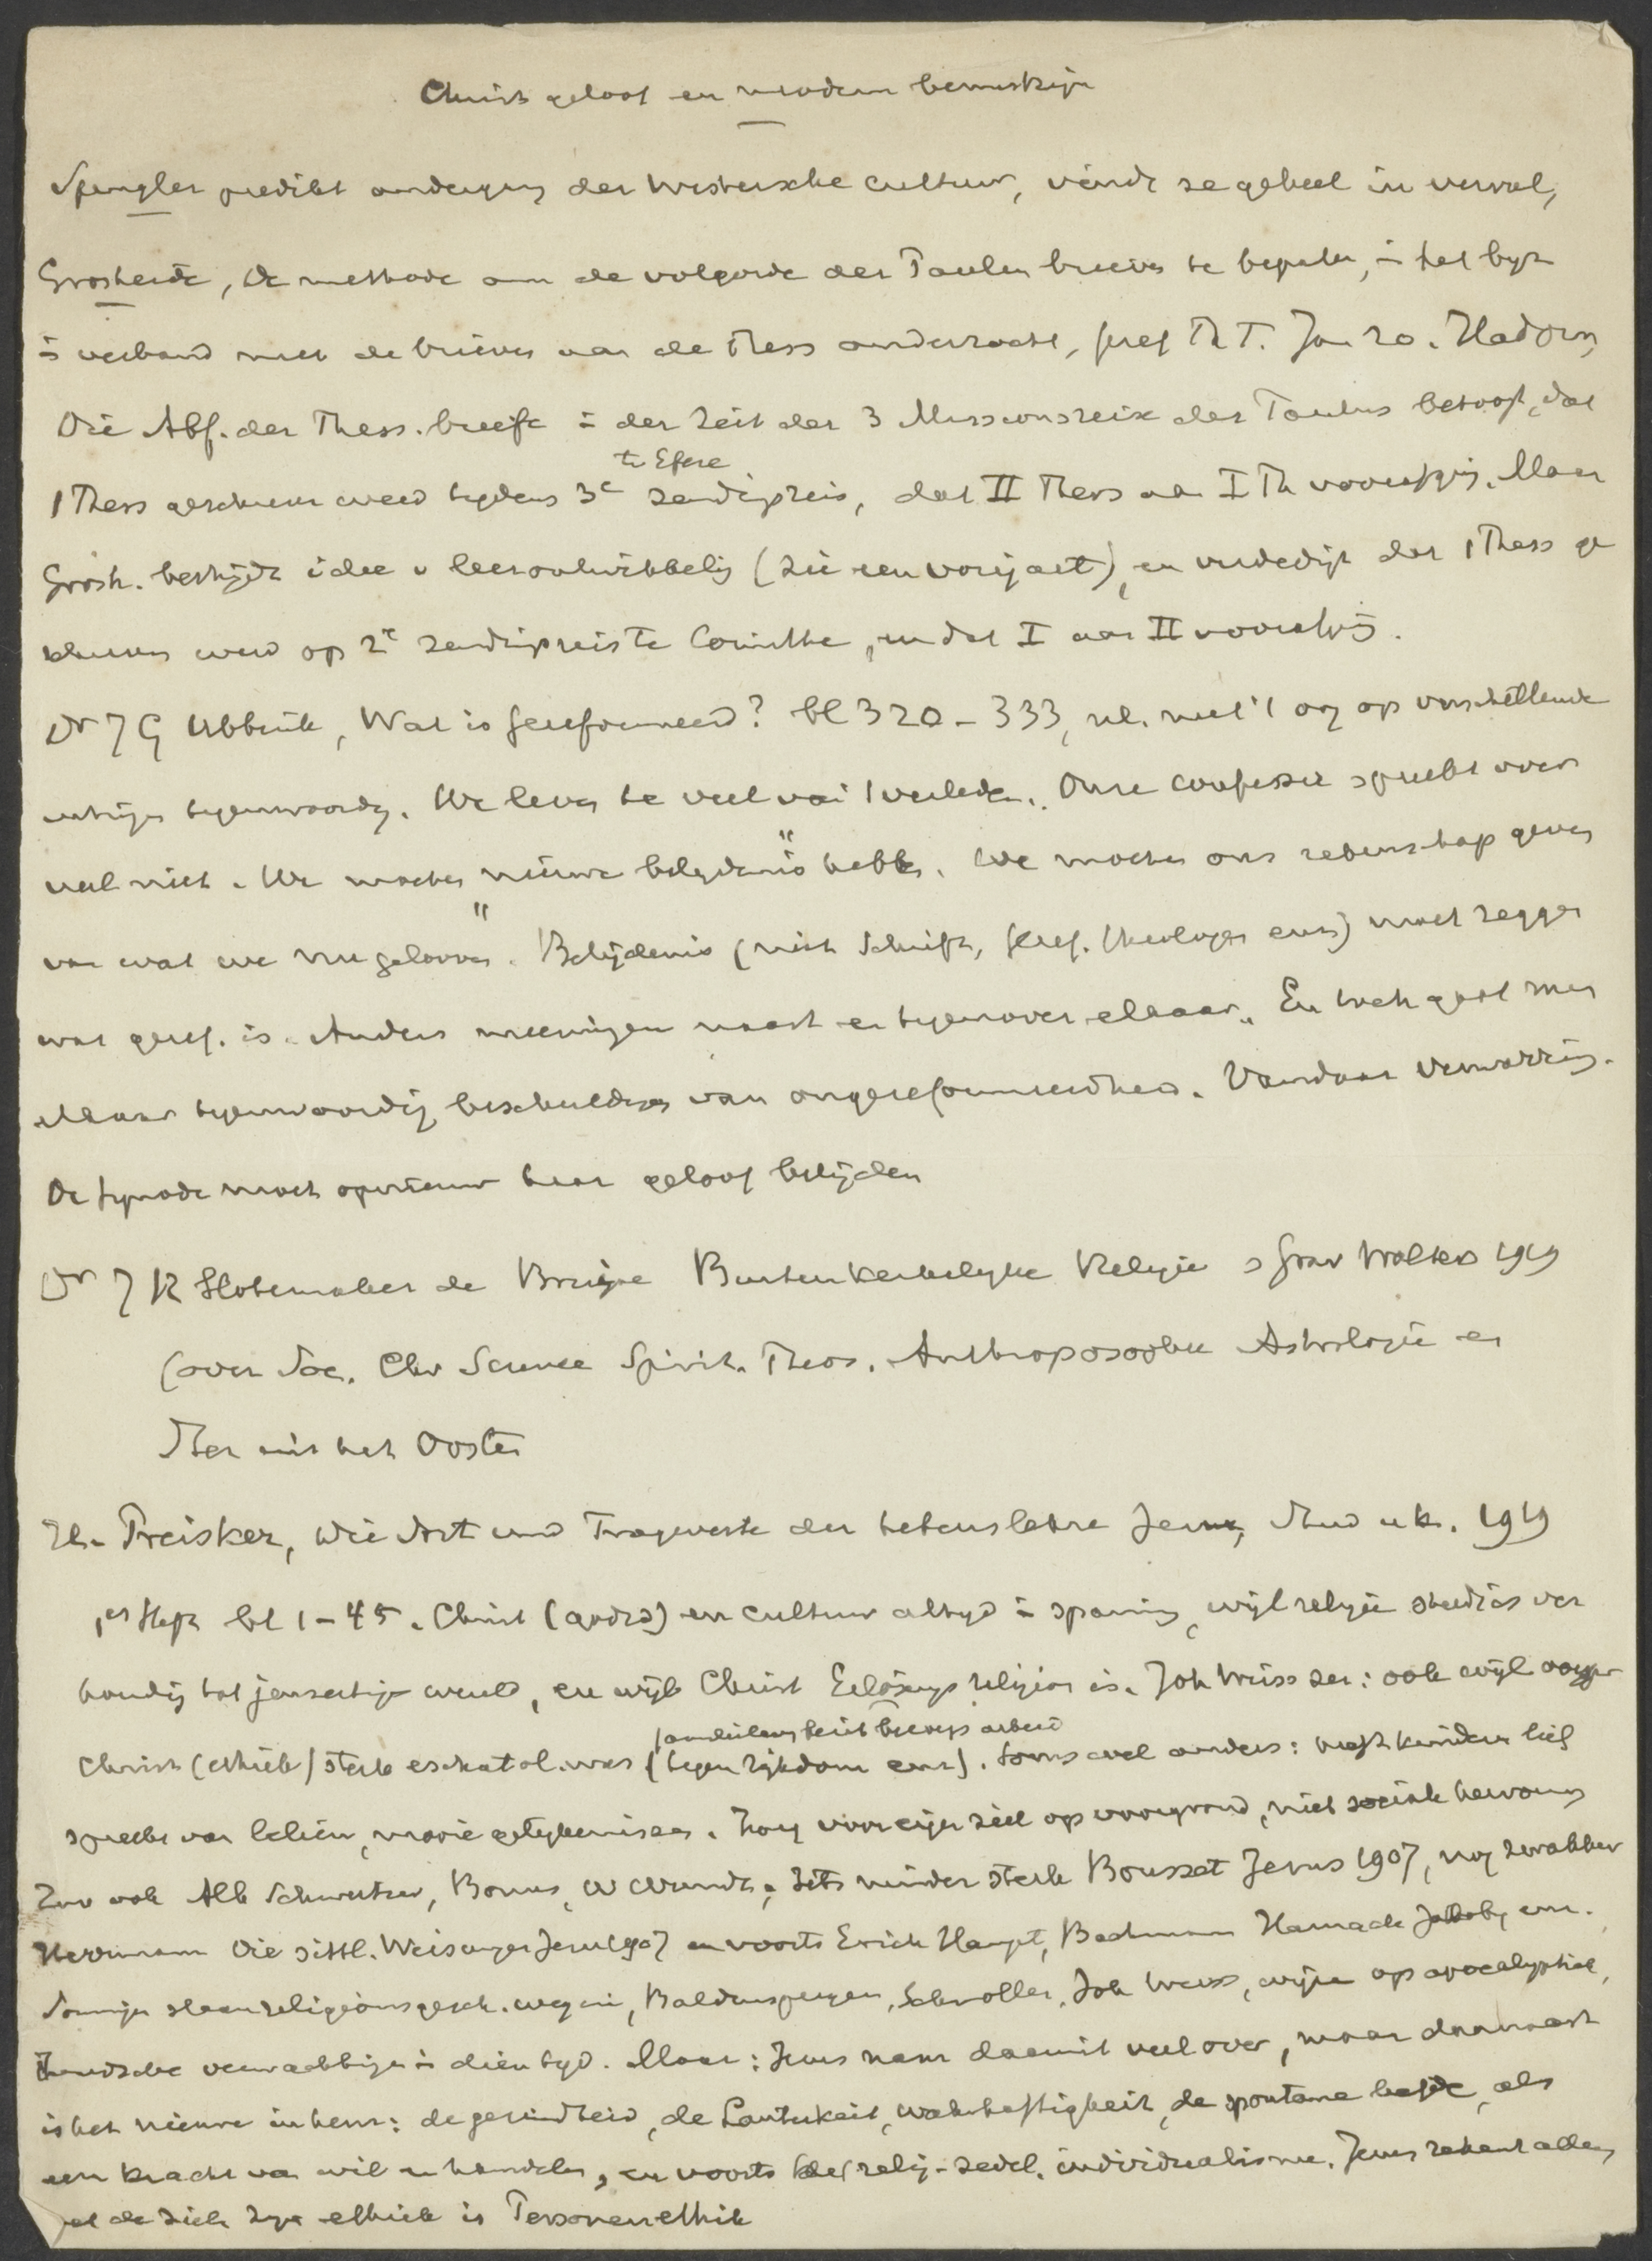 Christ geloof en modern bewustzijn
Spengler predikt ondergang der Westersche cultuur, vindt ze geheel in verval,
Grosheide, De methode om de volgorde der Paulin brieven te bepalen, in het byz
in verband met de brieven aan de Thess onderzocht, Geref Th T. Jan 20. Hadorn,
Die Abf. der Thess. briefe in der Zeit der 3 Missionsreise des Paulus betoogt, dat
te Efeze
1 Thess geschreven werd tydens 3e zendingsreis, dat II Thess aan I Th voorafging. Maar
Grosh. bestrijdt idee v leerontwikkeling (zie een vorig art), en verdedigt dat 1 Thess ge
schreven werd op 2e zendingsreis te Corinthe, en dat I aan II voorafging.
Dr J G Ubbink, Wat is Gereformeerd? bl 320-333, nl. met 't oog op verschillende
tegenwoordig. We leven te veel uit 't verleden. Onze confessie spreekt over
veel niet. We moeten "nieuwe belydenis" hebben. We moeten ons rekenschap geven
van wat we nu gelooven. Belijdenis (niet Schrift, Geref. theologen enz) moet zeggen
wat geref. is. Anders meeningen naast en tegenover elkaar. En toch gaat men
elkaar tegenwoordig beschuldigen van ongereformeerdheid. Vandaar verwarring.
De Synode moet opnieuw haar geloof belijden
Dr J R Slotemaker de Bruine Buitenkerkelyke Religie s Grav Wolters 1919
(over Soc. Chr Science Spirit. Theos. Anthroposophie Astrologie en
Ster uit het Oosten
H. Preisker, Die Art und Tragweite der Lebenslehre Jesu, Stud u k. 1919
1es Heft bl 1-45. Christ (godsd) en cultuur altyd in spanning, wijl religie steeds is ver
houding tot jenseitige wereld, en wijl Christ Erlösungs religion is. Joh Weiss zei: ook wijl
beroeps arbeid
Christ (ethiek) sterk eschatol. was (tegen rijkdom enz). Soms wel anders: heeft kinderen lief
spreekt van leliën, mooie gelykenissen. Zorg voor eigen ziel op voorgrond, niet sociale
Zoo ook Alb Schweitzer, Bonus, W Wundt. Iets minder sterk Bousset Jesus 1907, nog zwakker
Herrmann Die sittl. Weisungen Jesu 1907 en voorts Erich Haupt, Bachmann Harnack Jacoby enz.
Sommigen slaan religionsgesch. weg in, Baldensperger, Schmoller, Joh Weiss, wijzen op apocalyptiek,
Joodsche verwachtingen in dien tyd. Maar: Jezus nam daaruit veel over, maar daarnaast
is het nieuwe in hem: de gezindheid, de Lauterkeit, Wahrhaftigkeit, de spontane liefde, als
een kracht van wil en handelen, en voorts het relig-zedel. individualisme. Jezus rekent alleen
met de ziel. Zyn ethiek is Personenethik